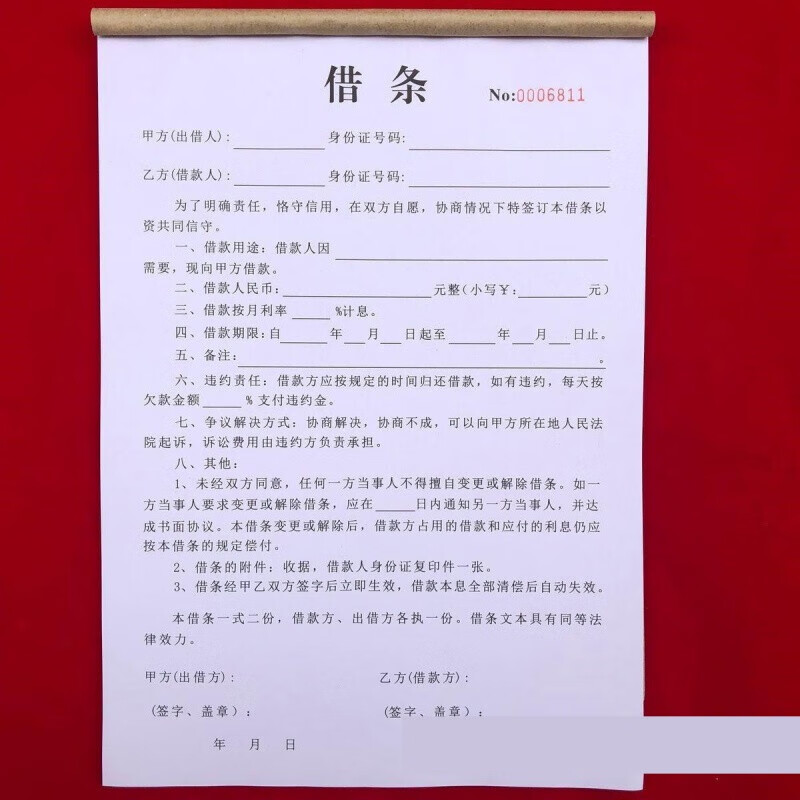 借 条
No:0006811
甲方(出借人): 身份证号码:
乙方(借款人): 身份证号码:
为了明确责任，恪守信用，在双方自愿，协商情况下特签订本借条以
资共同信守。
一、借款用途：借款人因
需要，现向甲方借款。
二、借款人民币: 元整(小写￥: 元)
三、借款按月利率 %计息。
四、借款期限：自 年 月 日起至 年 月 日止。
五、备注: 。
六、违约责任：借款方应按规定的时间归还借款，如有违约，每天按
欠款金额 % 支付违约金。
七、争议解决方式：协商解决，协商不成，可以向甲方所在地人民法
院起诉，诉讼费用由违约方负责承担。
八、其他：
1、未经双方同意，任何一方当事人不得擅自变更或解除借条。如一
方当事人要求变更或解除借条，应在 日内通知另一方当事人，并达
成书面协议。本借条变更或解除后，借款方占用的借款和应付的利息仍应
按本借条的规定偿付。
2、借条的附件：收据，借款人身份证复印件一张。
3、借条经甲乙双方签字后立即生效，借款本息全部清偿后自动失效。
本借条一式二份，借款方、出借方各执一份。借条文本具有同等法
律效力。
甲方(出借方): 乙方(借款方):
(签字、盖章): (签字、盖章):
年 月 日